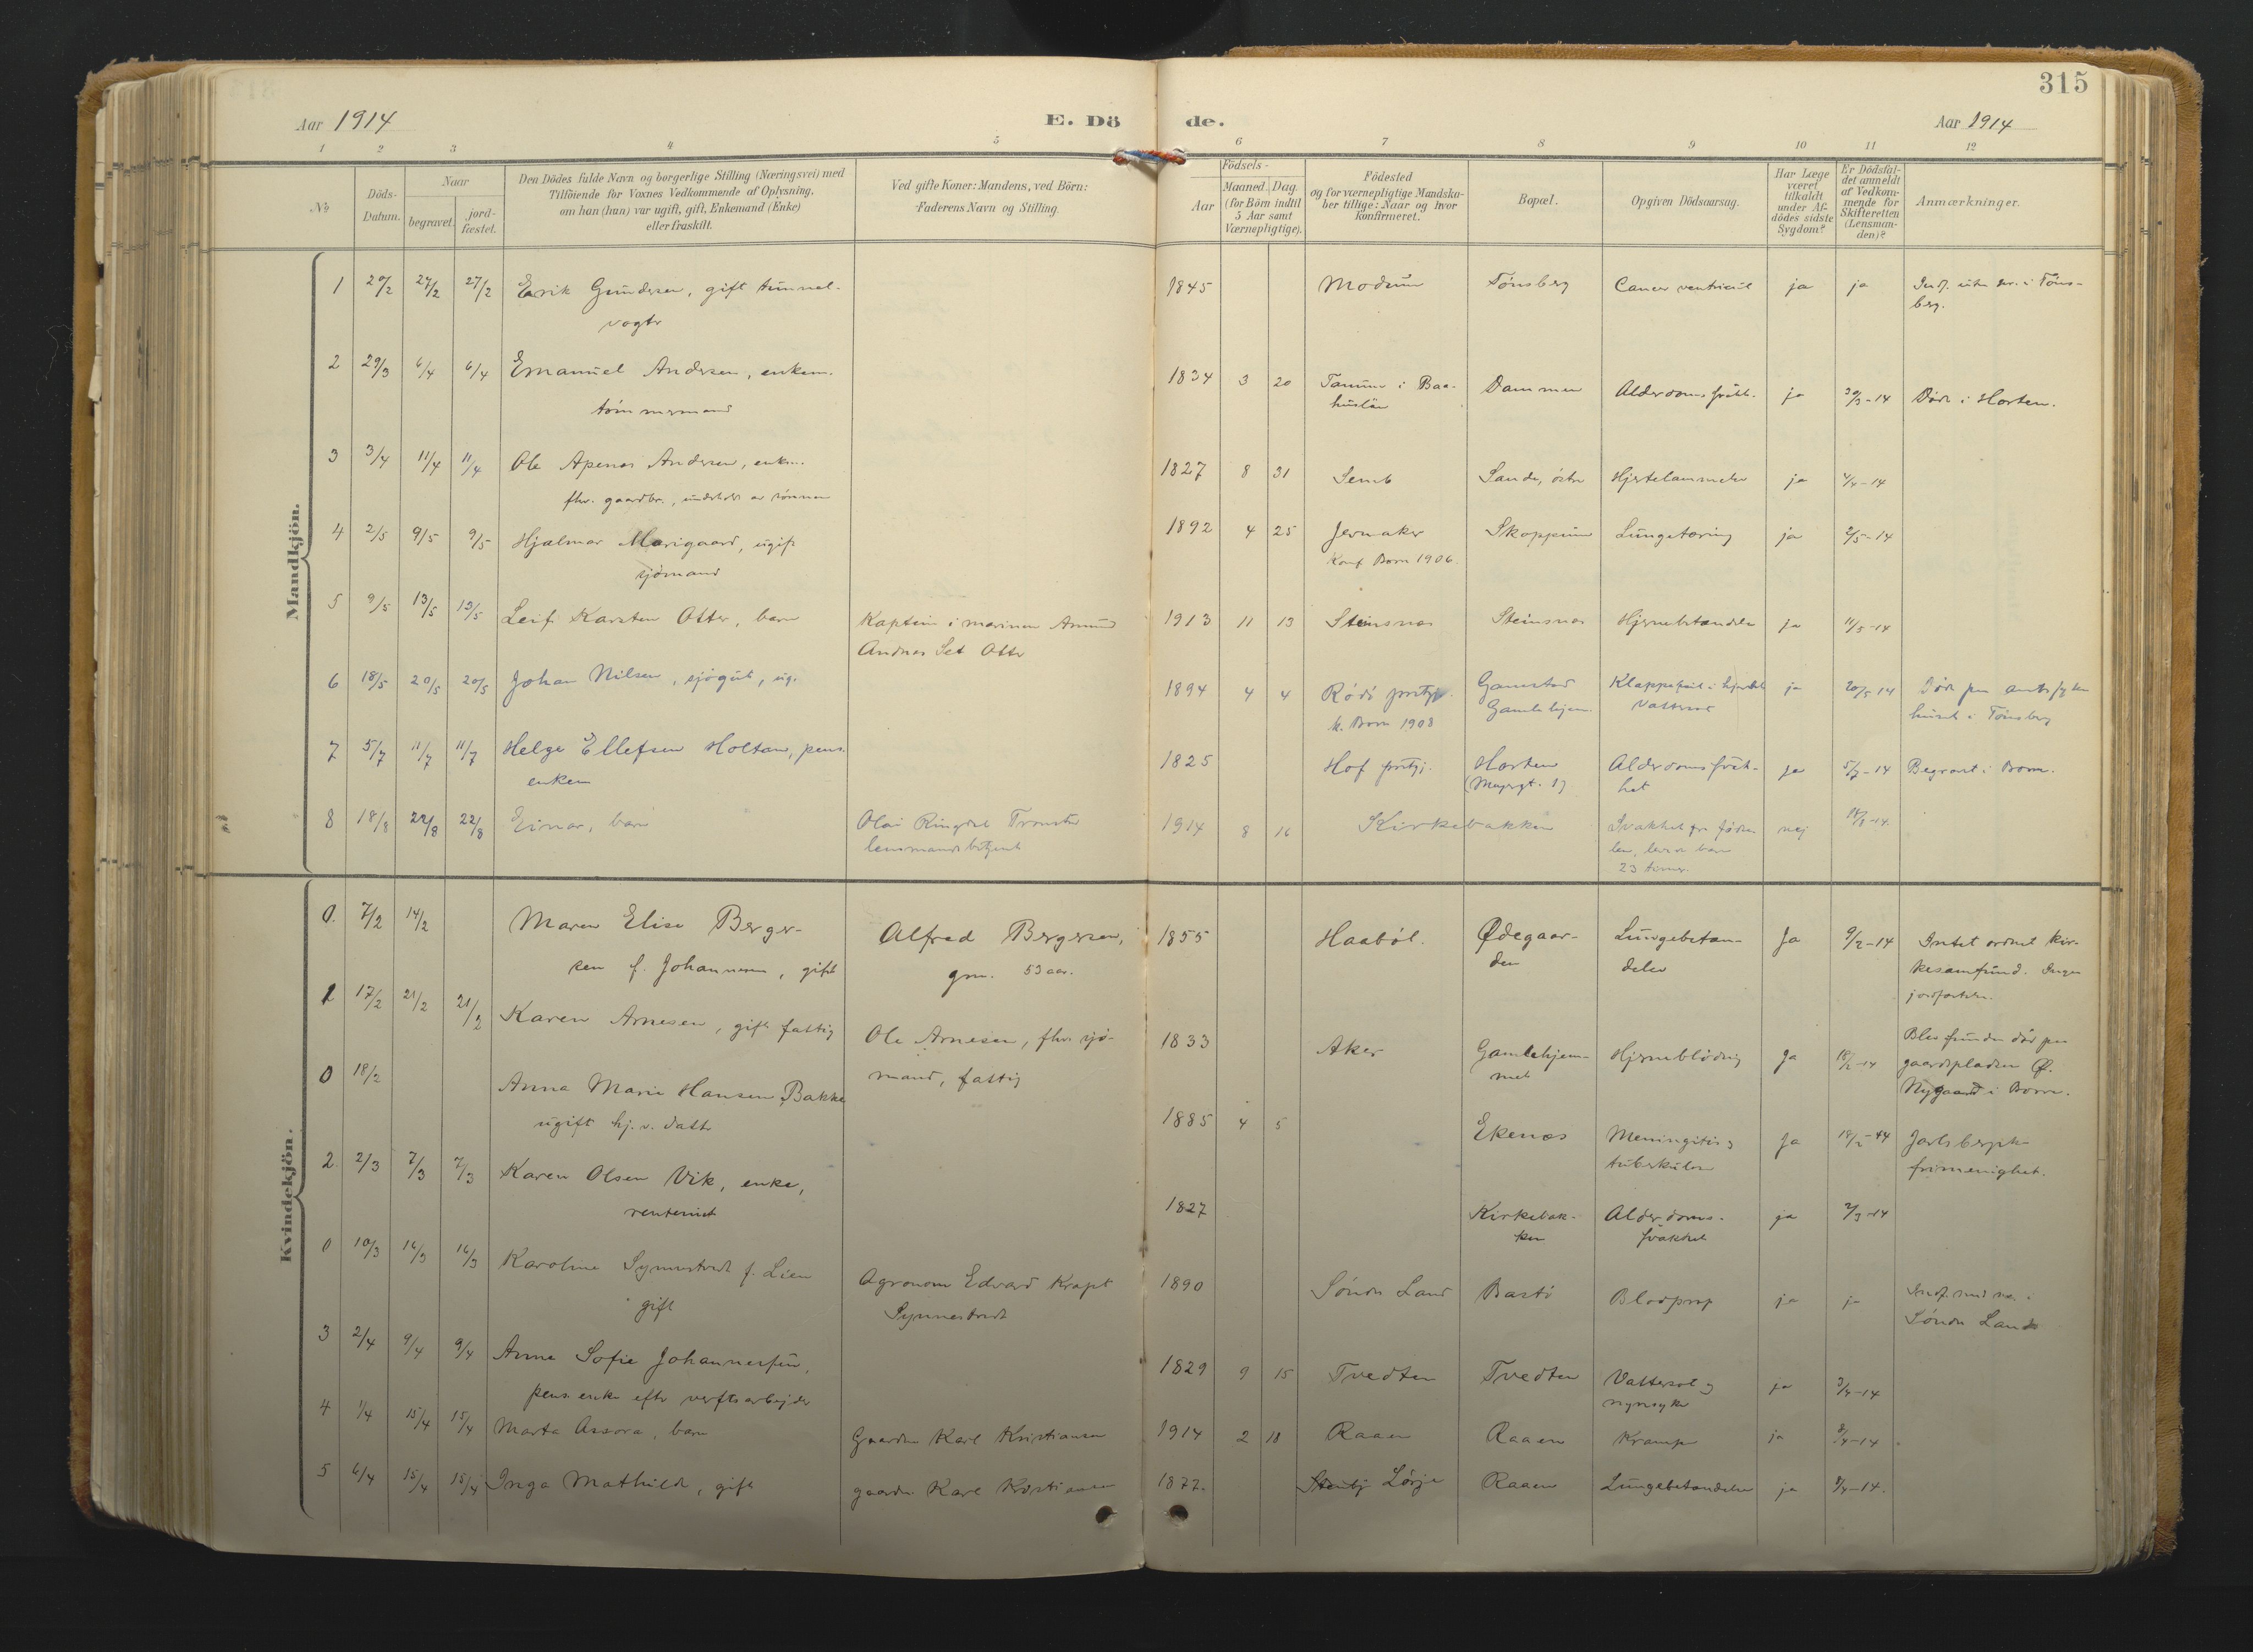 315
Aar 1914
E. Dö
de.
Aar 1914
1 2 3 4 5 6 7 8 9 10 11 12
No
Döds-Datum.
Naar
begravet.
jord-fæstet.
Den Dödes fulde Navn og borgerlige Stilling (Næringsvei) med
Tilföiende for Voxnes Vedkommende af Oplysning,
om han (hun) var ugift, gift, Enkemand (Enke)
eller fraskilt.
Ved gifte Koner: Mandens, ved Börn:
Faderens Navn og Stilling.
Födsels-
Aar
Maaned. Dag.
(for Börn indtil
5 Aar samt
Værnepligtige).
Födested
og for værnepligtige Mandska-
ber tillige: Naar og hvor
konfirmeret.
Bopæl.
Opgiven Dödsaarsag.
Har Læge
været
tilkaldt
under Af-
dödes sidste
Sygdom?
Er Dödsfal-
det anmeldt
af Vedkom-
mende for
Skifteretten
(Lensman-
den)?
Anmærkninger.
Mandkjön.
1 20/2 27/2 27/2 Erik Gundersen, gift tunnel- 1845 Modum Tönsberg Cancer ventriculi ja ja
vogter berg.
2 29/3 6/4 6/4 Emanuel Andersen, enkem. 1834 3 20 Tanum i Baa- Dammen ja 30/3-14 Död i Horten.
tömmermand huslän
3 3/4 11/4 11/4 Ole Apenes Andersen, enkem. 1827 8 31 Semb Sande, östre ja 4/4-14
fhv. gaardbr., underholdt av sönnen
4 2/5 9/5 9/5 Hjalmar Marigaard, ugift 1892 4 25 Jernaker Skoppum Lungetæring ja 2/5-14
sjömand Konf Borre 1906.
5 9/5 13/5 13/5 Leif Karsten Otter, barn Kaptein i marinen Amund 1913 11 13 Steinsnes Steinsnes Hjernebetændelse ja 11/5-14
Andreas Otter
6 18/5 20/5 20/5 Johan Nilsen, sjögut, ug. 1894 4 4 prstgj. Klappefeil i hjertet ja 20/5 14 Död paa amtssyke
k. Borre 1908 Gamlehjem. Vattersot huset i Tönsberg
7 5/7 11/7 11/7 Helge Ellefsen Holtan, pens. 1825 Hof prstgj. Horten Alderdomssvak- ja 5/7-14 Begravet i Borre.
enkem het
8 18/8 22/8 22/8 Einar, barn Olai Ringdal Tronstad 1914 8 16 Kirkebakken Svakhet fra födse- nej
lensmandsbetjent len, levde bare
23 timer.
Kvindekjön.
0. 7/2 14/2 Maren Elise Berger- Alfred Bergersen, 1855 Haaböl. Ödegaar- Lungebetæn- Ja 9/2-14 Intet ordnet kir-
sen f. Johannesen, gift gm. 53 aar. den delse kesamfund. Ingen
jordfæstelse.
1 17/2 21/2 21/2 Karen Arnesen, gift fattig Ole Arnesen, fhv. sjö- 1833 Aker Gamlehjem- Hjerneblödning Ja 18/2-14 Blev funden död paa
mand, fattig met gaardspladsen Ö.
Nygaard i Borre.
0 18/2 Anna Marie Hansen Bakke 1885 4 5 Ekenæs Meningitis Ja Jarlsbergske
ugift hj. v. datter tuberkulose frimenighet.
2. 2/3 7/3 7/3 Karen Olsen Vik, enke, 1827 Kirkebak- Alderdoms- ja 2/3-14
rentenist ken svakhet
0 10/3 16/3 16/3 Karoline Synnestvedt f. Lien Agronom Edvard Kraft 1890 Söndre Land Bastö Blodprop ja ja
gift Synnestvedt Söndre Land
3 2/4 9/4 9/4 Anne Sofie Johannessen, 1829 9 15 Tvedten Tvedten Vattersot ja 3/4-14
pens. enke efter verftsarbejder nyresyke
4 1/4 15/4 15/4 Marta Assora, barn Gaardm. Karl Kristiansen 1914 2 18 Raaen Raaen Krampe ja 8/4-14
5 6/4 15/4 15/4 Inga Mathilde, gift gaardm. Karl Kristiansen 1877. Raaen Lungebetændelse ja 8/4-14.